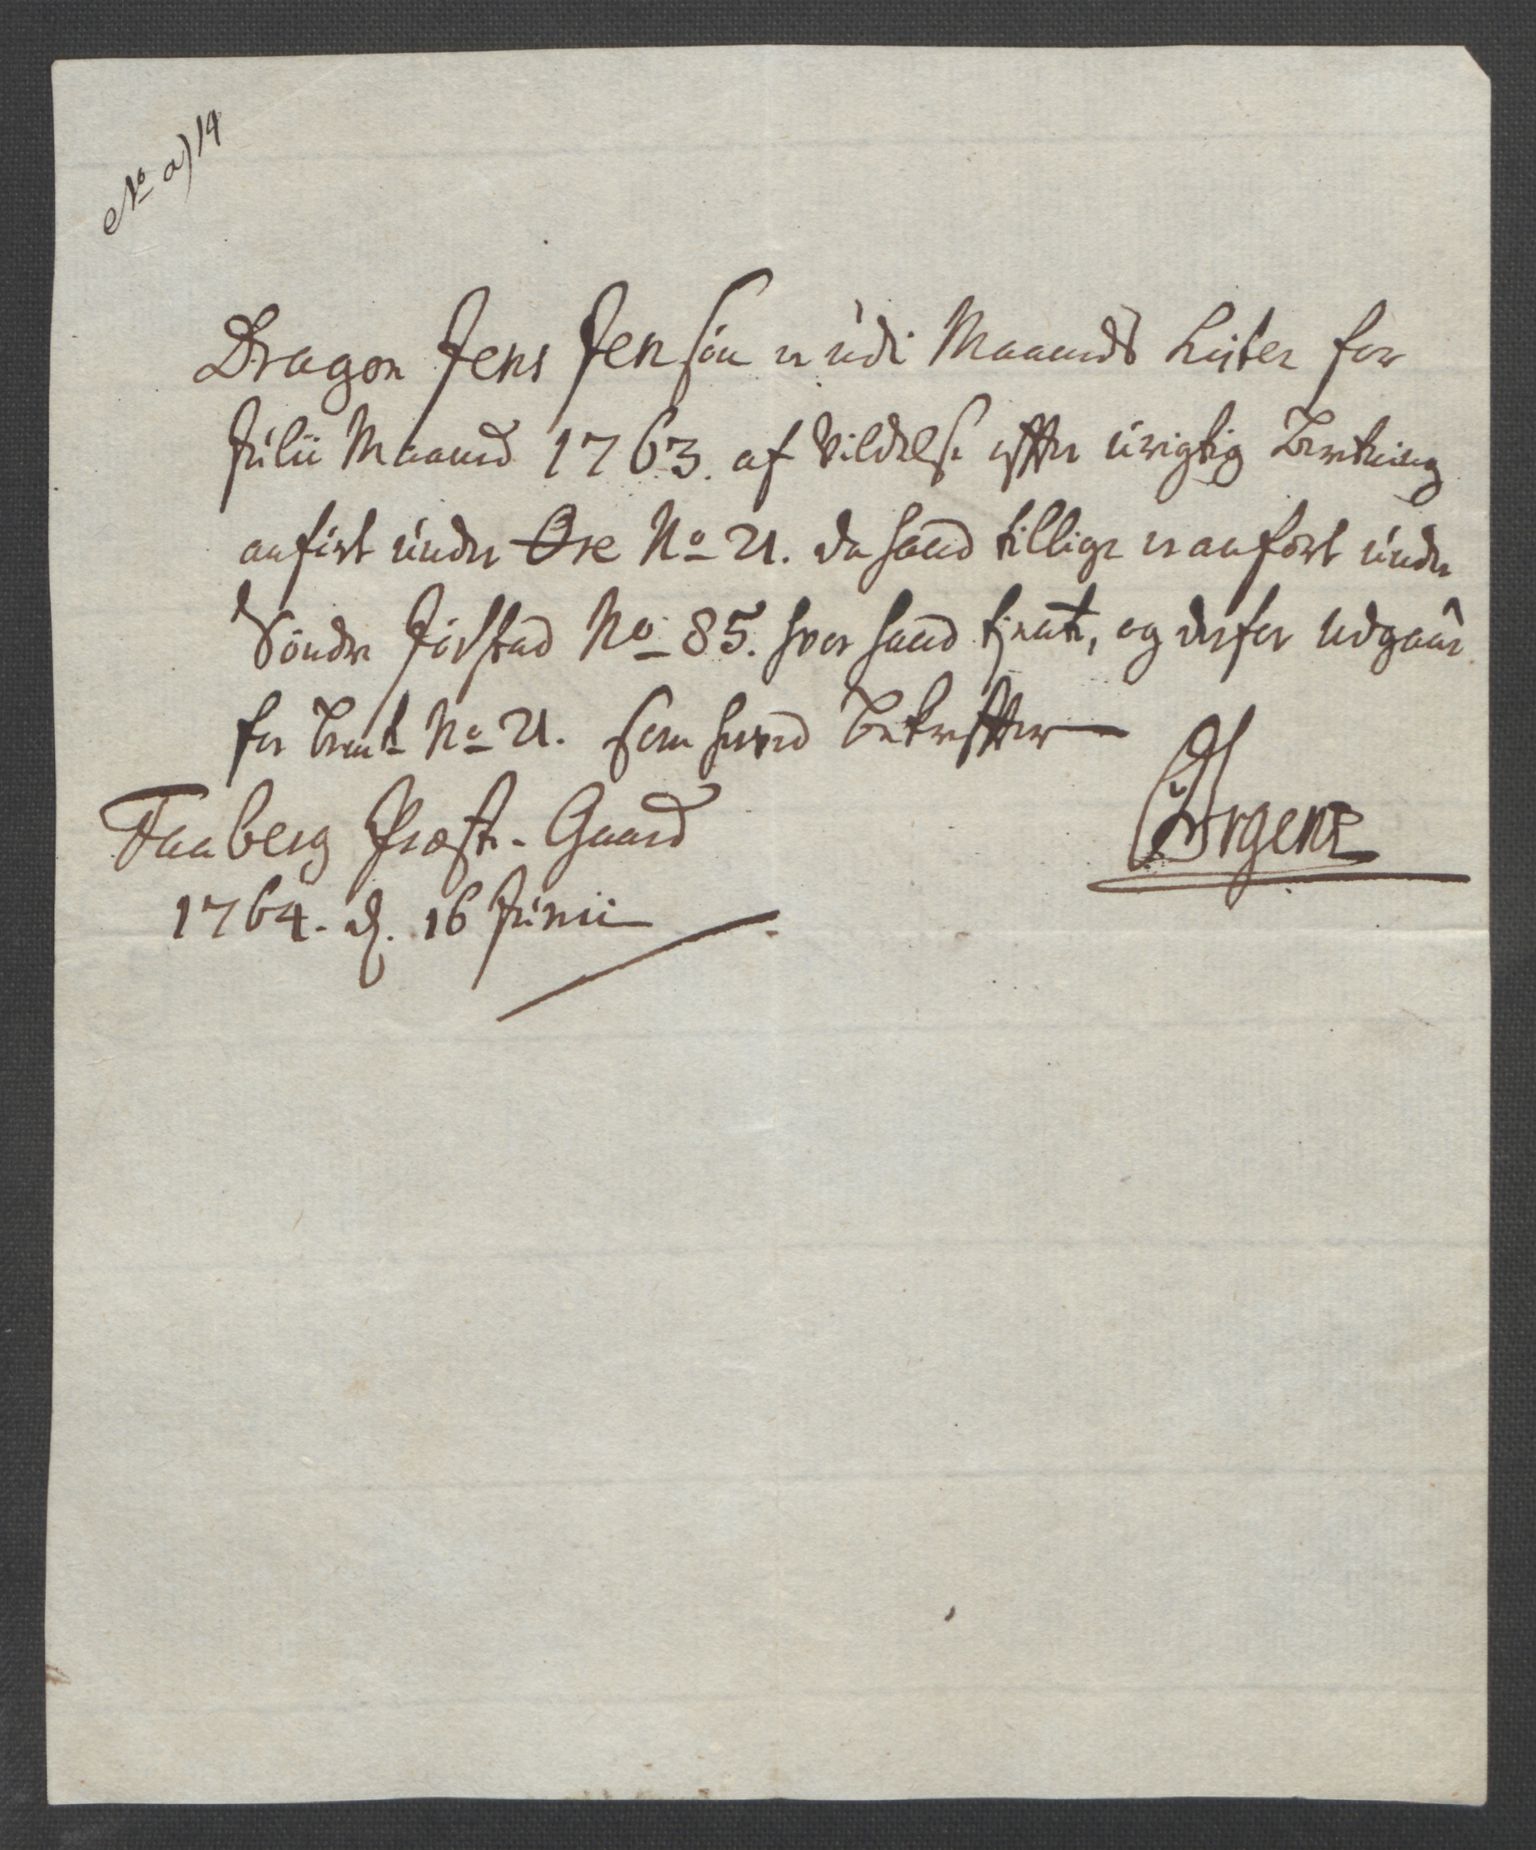 No a) 14
Dragon Jens Jensön er udi Maaneds Lister for
Julii Maaned 1763. af Vildelse effter urigtig Beretning
anfört under Öre No 21. da hand tillige er anfört under
Söndre Jörstad No 85. hvor hand tiente, og derfor udgaar
for bemte No 21. som herved bekreffter
Faaberg Præste-Gaard
1764. d. 16 Junii